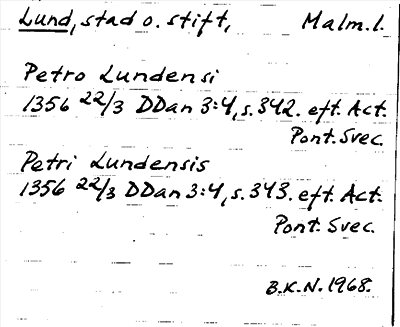 Lund, stad o. stift, Malm. l.
Petro Lundensi
1356 22/3 DDan 3:4, s. 342. eft. Act.
Pont. Svec.
Petri Lundensis
1356 22/3 DDan 3:4, s. 343. eft. Act.
Pont. Svec.
B.K.N. 1968.